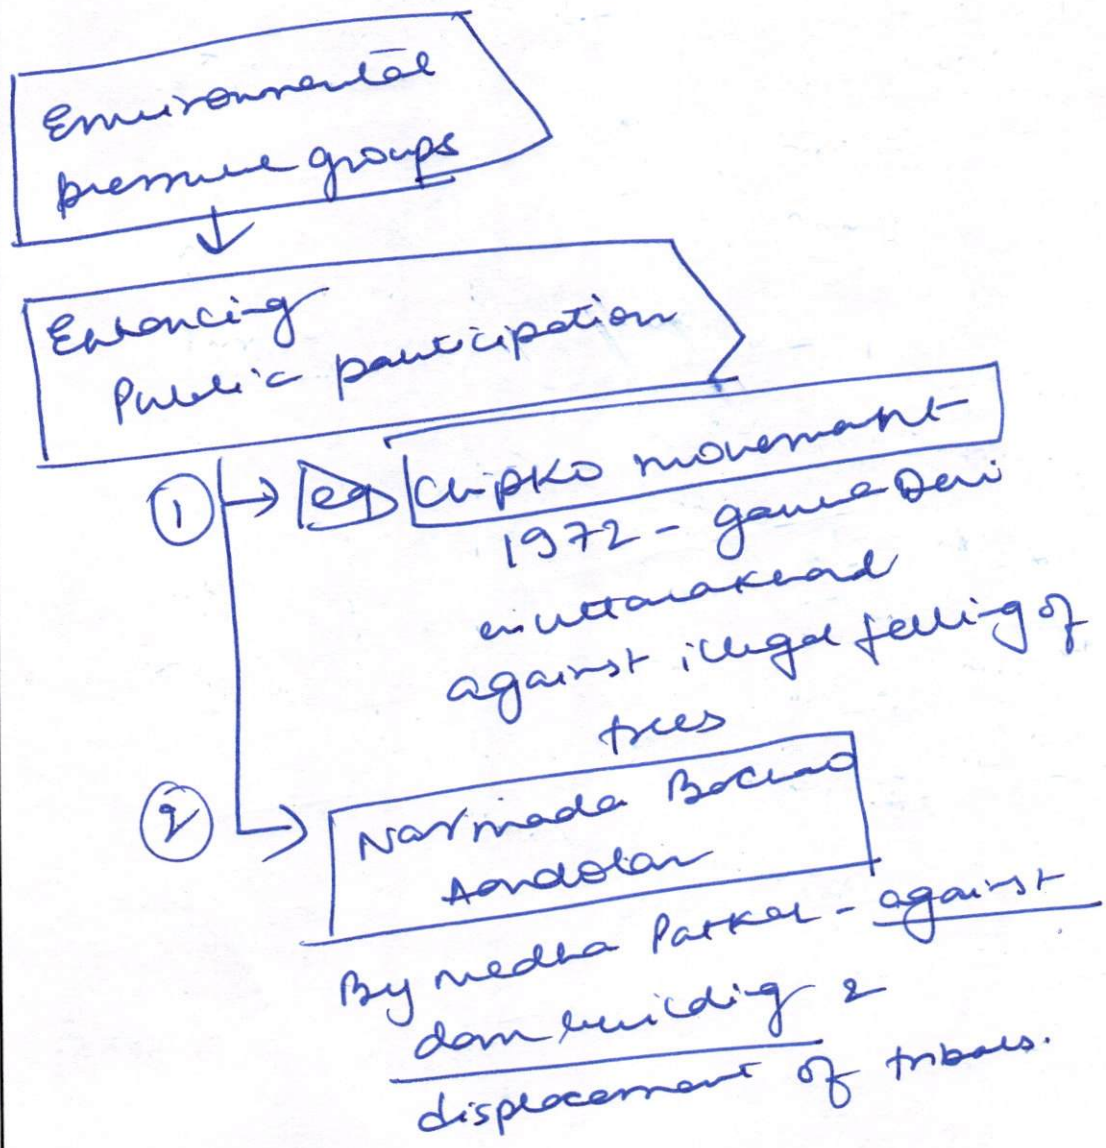 Environmental
pressure groups
Enhancing
Public participation
① eg Chipko movement
1972 - gaura Devi
in uttarakhand
against illegal felling of
trees
② Narmada Bachao
Aandolan
By medha Patkar - against
dam building &
displacement of tribals.